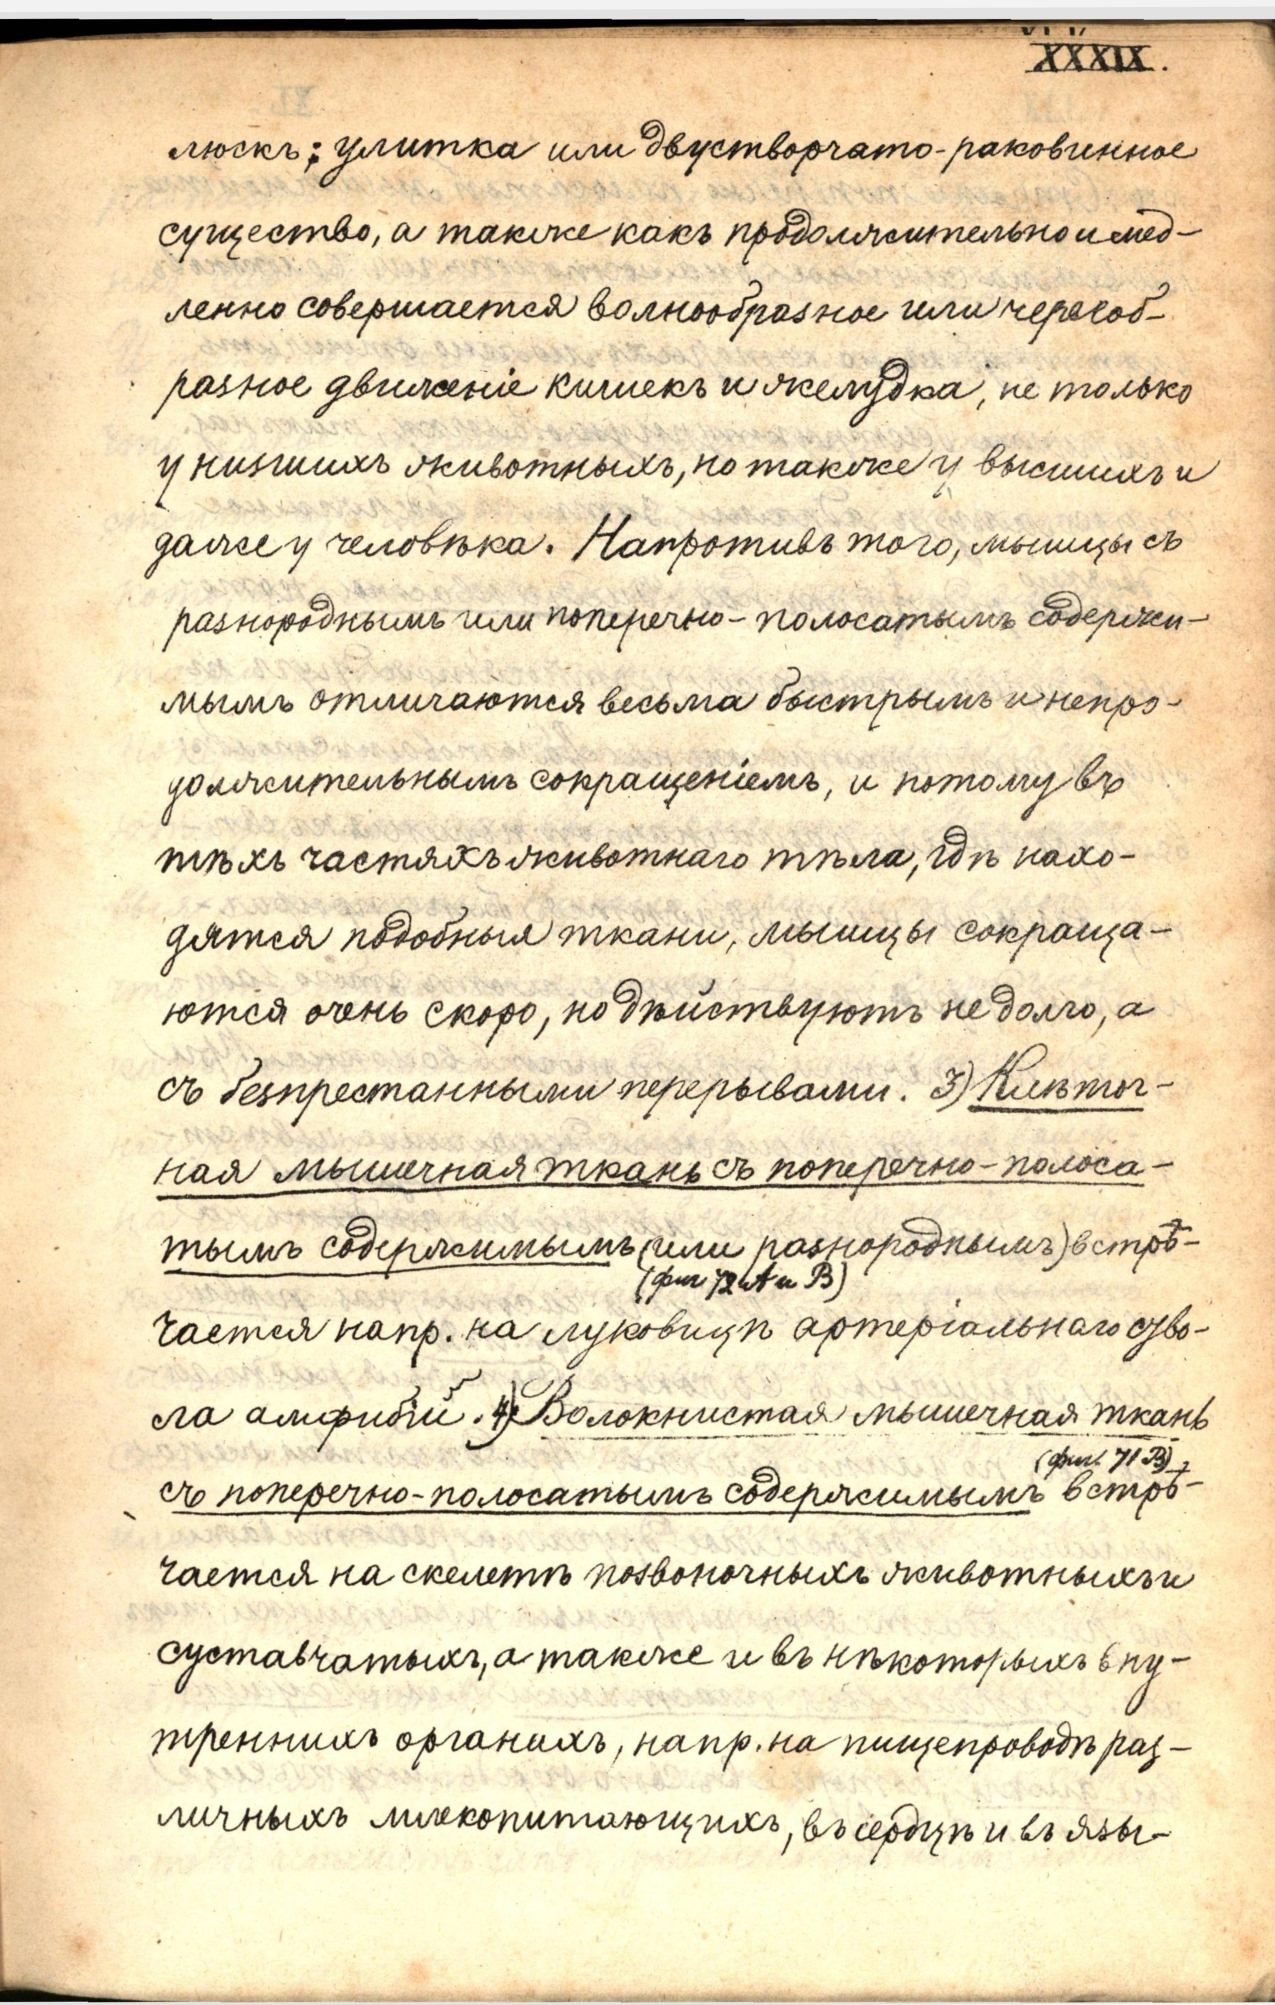 XXXIX.
люскъ; улитка или двустворчато-раковинное
существо, а также какъ продолжительно и мед-
ленно совершается волнообразное или червеоб-
разное движеніе кишекъ и желудка, не только
у низшихъ животныхъ, но также у высшихъ и
даже у человѣка. Напротивъ того, мышцы съ
разнороднымъ или поперечно-полосатымъ содержи-
мымъ отличаются весьма быстрымъ и непро-
должительнымъ сокращеніемъ, и потому въ
тѣхъ частяхъ животнаго тѣла, гдѣ нахо-
дятся подобныя ткани, мышцы сокраща-
ются очень скоро, но дѣйствуютъ не долго, а
съ безпрестанными перерывами. 3) Клѣточ-
ная мышечная ткань съ поперечно-полоса-
тымъ содержимымъ (или разнороднымъ) встрѣ-
(фиг 72 A и B)
чается напр. на луковицѣ артеріальнаго ство-
ла амфибій. 4) Волокнистая мышечная ткань
(фиг. 71 B)
съ поперечно-полосатымъ содержимымъ встрѣ-
чается на скелетѣ позвоночныхъ животныхъ и
суставчатыхъ, а также и въ нѣкоторыхъ вну-
треннихъ органахъ, напр. на пищепроводѣ раз-
личныхъ млекопитающихъ, въ сердцѣ и въ язы-